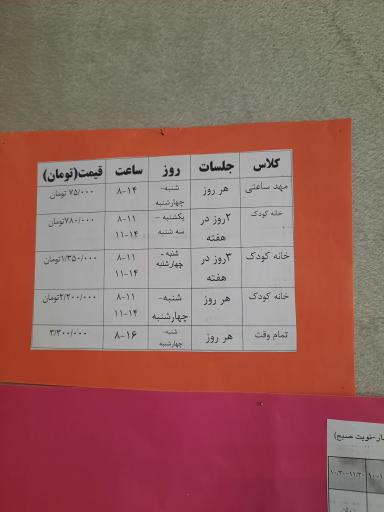 کلاس جلسات روز ساعت قیمت(تومان)
مهد ساعتی هر روز شنبه- چهارشنبه ۸-۱۴ ۷۵/۰۰۰ تومان
خانه کودک ۲روز در هفته یکشنبه - سه شنبه ۸-۱۱ ۱۱-۱۴ ۷۸۰/۰۰۰تومان
خانه کودک ۳روز در هفته شنبه - چهارشنبه ۸-۱۱ ۱۱-۱۴ ۱/۳۵۰/۰۰۰تومان
خانه کودک هر روز شنبه- چهارشنبه ۸-۱۱ ۱۱-۱۴ ۲/۲۰۰/۰۰۰تومان
تمام وقت هر روز شنبه- چهارشنبه ۸-۱۶ ۳/۳۰۰/۰۰۰
نوبت صبح)
۱۰/۳۰-۱۱/۳۰